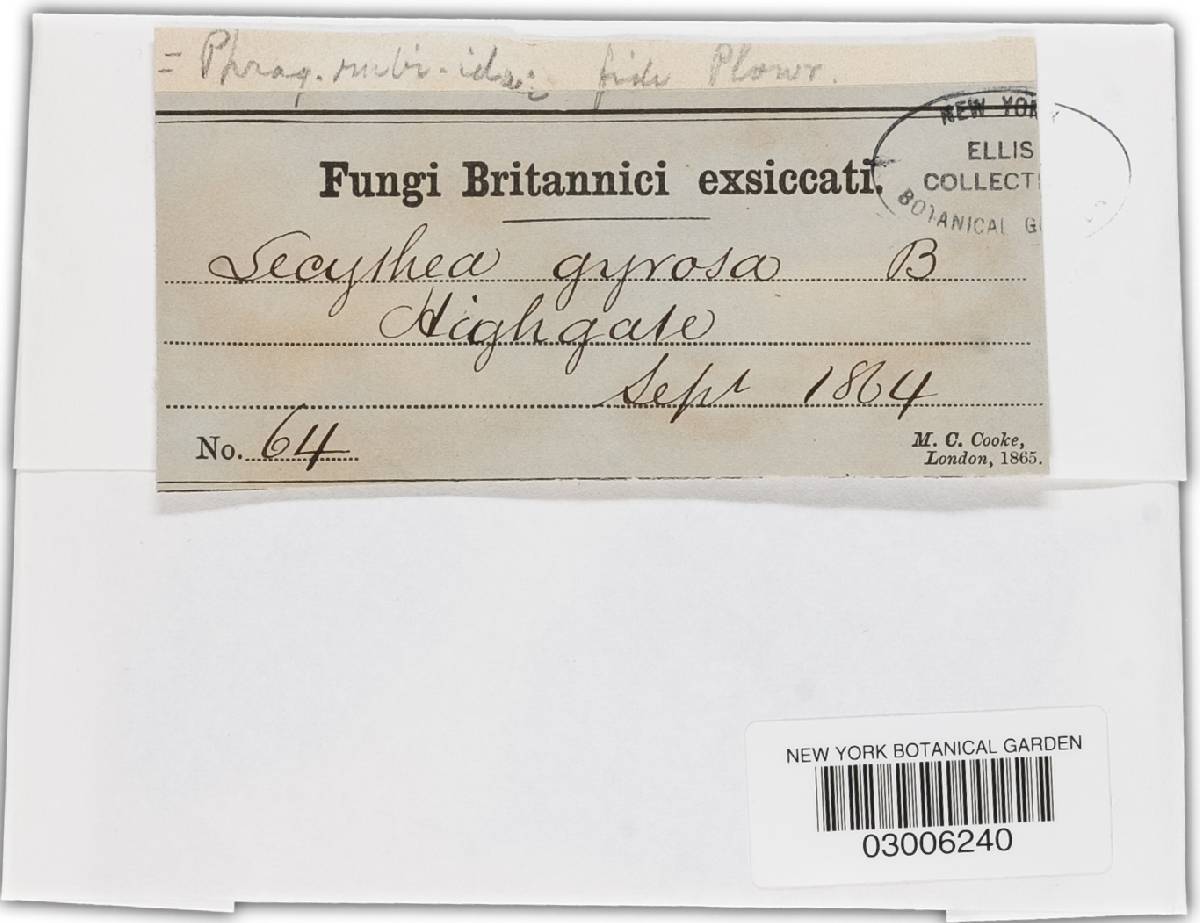 = Phrag. rubi-idaei fide Plowr.
NEW YORK
ELLIS
COLLECTI
BOTANICAL G
Fungi Britannici exsiccati.
Lecythea gyrosa B
Highgate
Sept 1864
No. 64
M. C. Cooke,
London, 1865.
NEW YORK BOTANICAL GARDEN
03006240